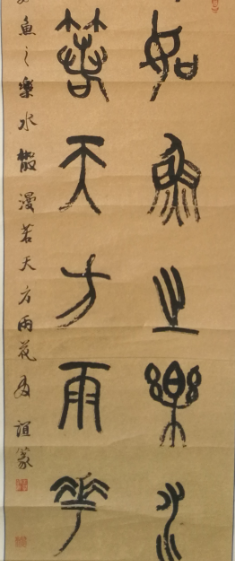 如魚之樂水
若天方雨花
魚之樂水散漫若天方雨花 誼篆